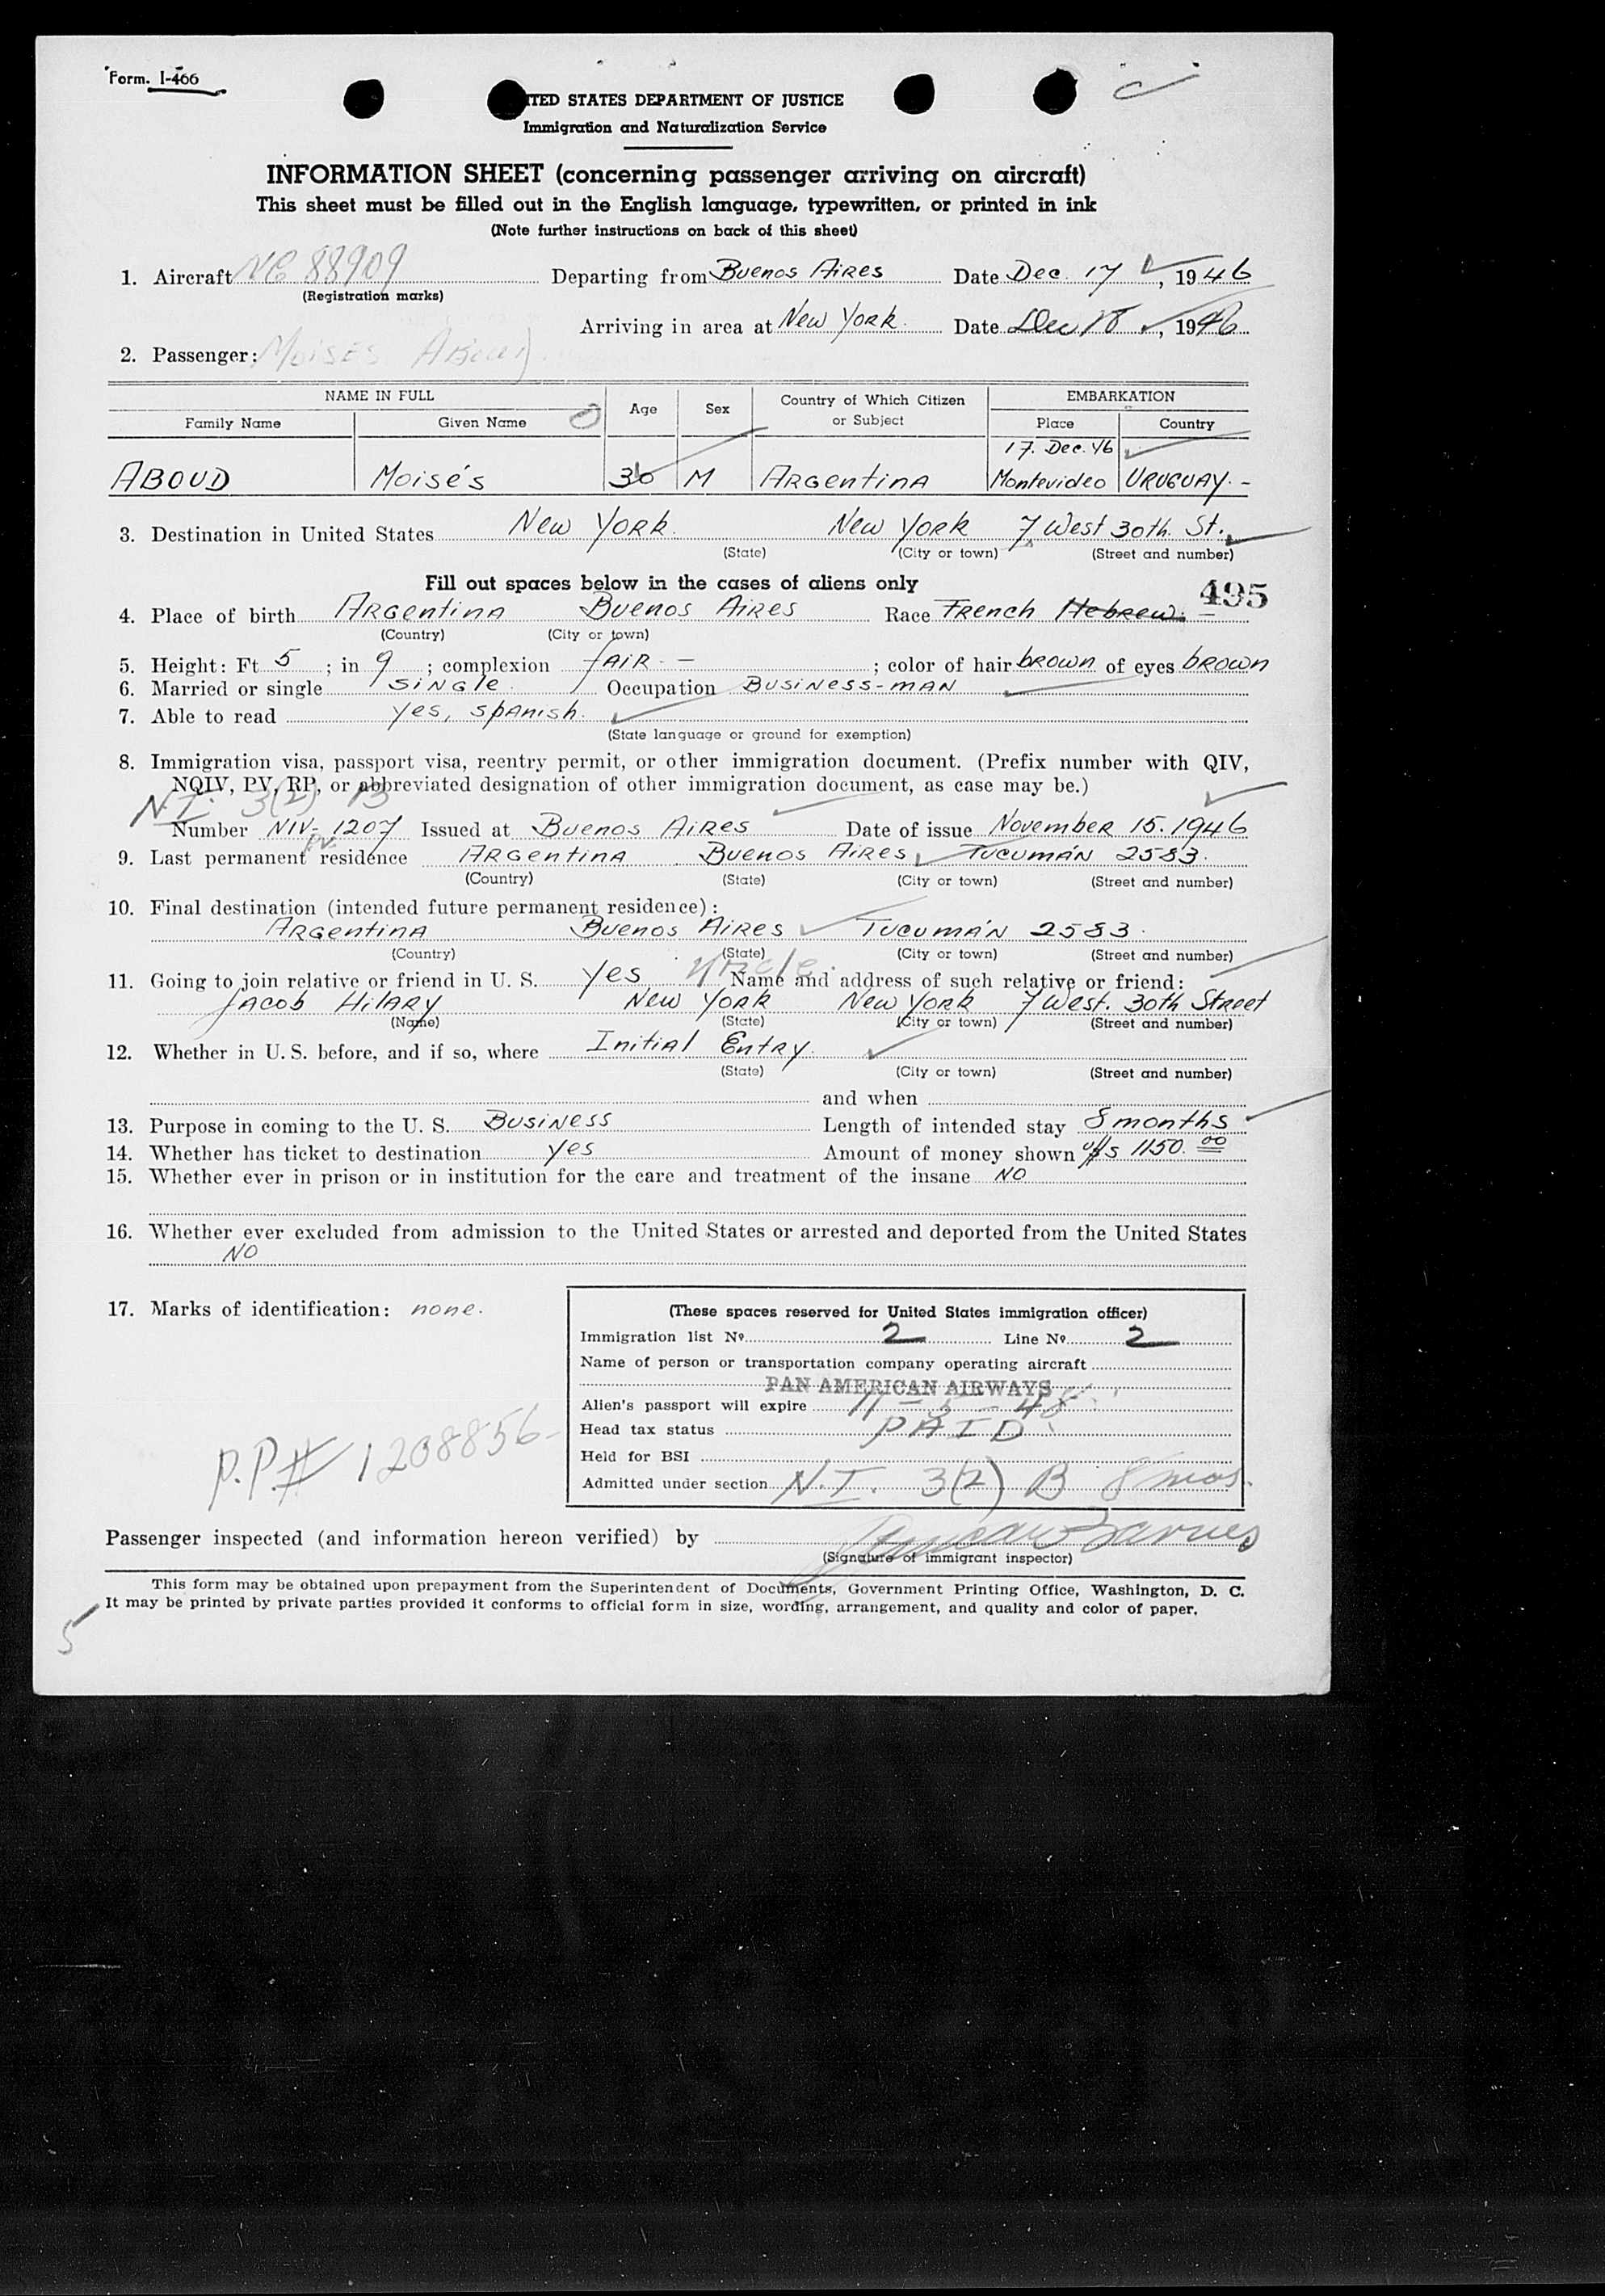 Form. I-466
UNITED STATES DEPARTMENT OF JUSTICE
Immigration and Naturalization Service
INFORMATION SHEET (concerning passenger arriving on aircraft)
This sheet must be filled out in the English language, typewritten, or printed in ink
(Note further instructions on back of this sheet)
1. Aircraft NC 88909 Departing from Buenos Aires Date Dec. 17, 1946
(Registration marks)
Arriving in area at New York Date Dec 18, 1946
2. Passenger: Moises Aboud
NAME IN FULL Age Sex Country of Which Citizen or Subject EMBARKATION
Family Name Given Name Place Country
17. Dec. 46
ABOUD Moisés 30 M Argentina Montevideo URUGUAY. -
3. Destination in United States New York. New York 7 West 30th. St.
(State) (City or town) (Street and number)
Fill out spaces below in the cases of aliens only 495
4. Place of birth Argentina Buenos Aires Race French Hebrew. -
(Country) (City or town)
5. Height: Ft 5; in 9; complexion fair - ; color of hair brown of eyes brown
6. Married or single single. Occupation Business-man
7. Able to read yes, spanish.
(State language or ground for exemption)
8. Immigration visa, passport visa, reentry permit, or other immigration document. (Prefix number with QIV,
NQIV, PV, RP, or abbreviated designation of other immigration document, as case may be.)
N.I. 3(2) B
Number NIV- 1207 Issued at Buenos Aires Date of issue November 15. 1946
PV
9. Last permanent residence Argentina Buenos Aires, Tucumán 2583.
(Country) (State) (City or town) (Street and number)
10. Final destination (intended future permanent residence):
Argentina Buenos Aires Tucumán 2583.
(Country) (State) (City or town) (Street and number)
11. Going to join relative or friend in U. S. yes uncle. Name and address of such relative or friend:
Jacob Hilary New York New York 7 West. 30th Street
(Name) (State) (City or town) (Street and number)
12. Whether in U. S. before, and if so, where Initial Entry.
(State) (City or town) (Street and number)
and when
13. Purpose in coming to the U. S. Business Length of intended stay 8 months
14. Whether has ticket to destination yes Amount of money shown u$s 1150.00
15. Whether ever in prison or in institution for the care and treatment of the insane NO
16. Whether ever excluded from admission to the United States or arrested and deported from the United States
NO
17. Marks of identification: none.
(These spaces reserved for United States immigration officer)
Immigration list No 2 Line No 2
Name of person or transportation company operating aircraft
PAN AMERICAN AIRWAYS
Alien's passport will expire 11 - 5 - 48
Head tax status PAID
Held for BSI
Admitted under section N.I. 3(2) B 8 mos.
P.P.# 1208856-
Passenger inspected (and information hereon verified) by Barnes
(Signature of immigrant inspector)
This form may be obtained upon prepayment from the Superintendent of Documents, Government Printing Office, Washington, D. C.
It may be printed by private parties provided it conforms to official form in size, wording, arrangement, and quality and color of paper.
5